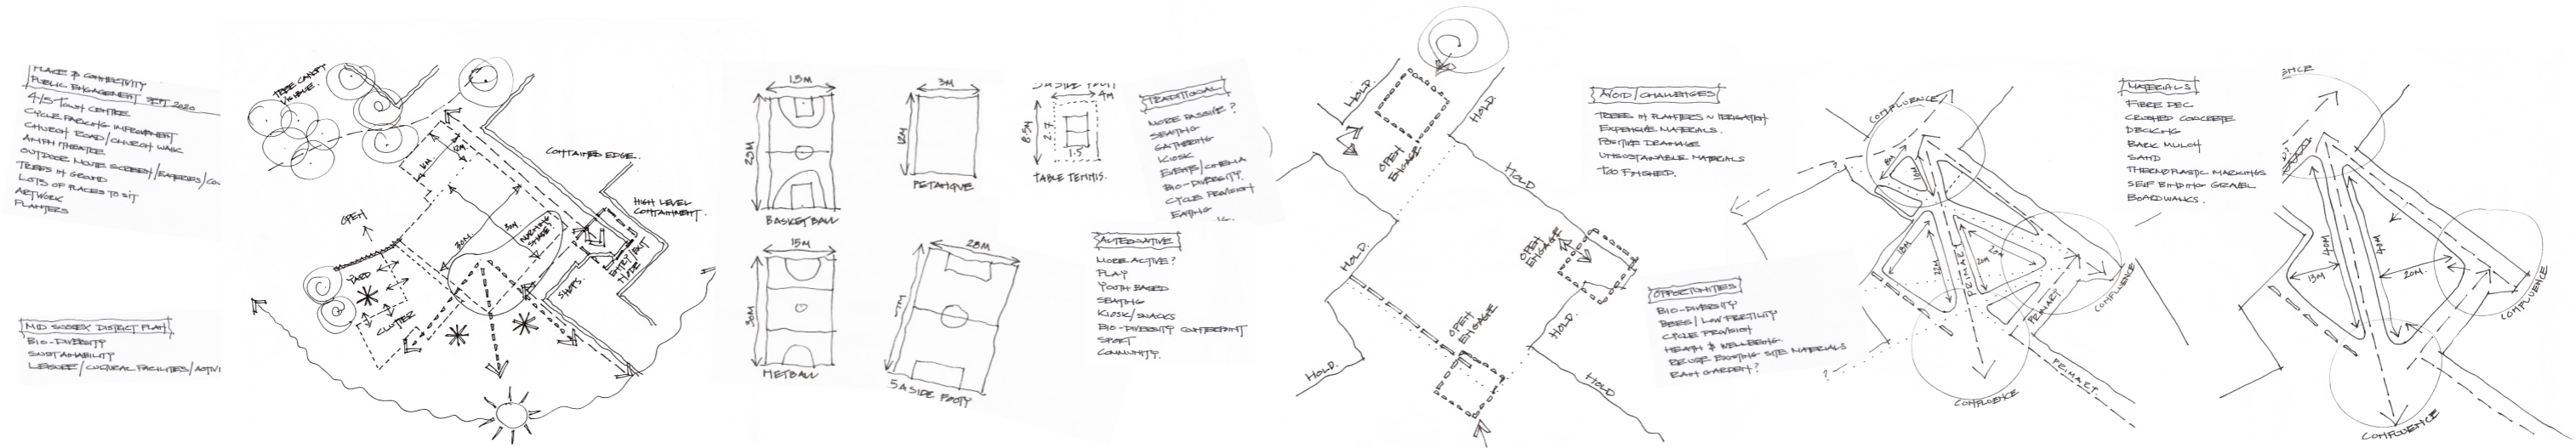 PLACE & CONNECTIVITY
PUBLIC ENGAGEMENT SEPT 2020
4/5 TOWN CENTRE
CYCLE PARKING IMPROVEMENT
CHURCH ROAD/CHURCH WALK
AMPHITHEATRE
OUTDOOR MOVIE SCREEN/EATERIES/CO
TREES IN GROUND
LOTS OF PLACES TO SIT
ARTWORK
PLANTERS
MID SUSSEX DISTRICT PLAN
BIO-DIVERSITY
SUSTAINABILITY
LEISURE/CULTURAL FACILITIES/ACTIVI
TREE CANOPY
VISIBLE.
12M
CONTAINED EDGE.
HIGH LEVEL
CONTAINMENT.
OPEN
30M
30M
ENTRY/EXIT
YARD
SHOPS.
CLUTTER
13M
BASKETBALL
3M
12M
PETANQUE
4M
8.5M
2.7
1.5
TABLE TENNIS.
15M
30M
NETBALL
28M
5 A SIDE FOOTY
TRADITIONAL
MORE PASSIVE?
SEATING
GATHERING
KIOSK
EVENTS/CINEMA
BIO-DIVERSITY
CYCLE PROVISION
EATING
ALTERNATIVE
MORE ACTIVE?
PLAY
YOUTH BASED
SEATING
KIOSK/SNACKS
BIO-DIVERSITY COUNTERPOINT
SPORT
COMMUNITY.
HOLD.
HOLD.
OPEN
ENGAGE
HOLD
HOLD
OPEN
ENGAGE
OPEN
ENGAGE
HOLD
HOLD.
HOLD
AVOID/CHALLENGES
TREES IN PLANTERS ~ IRRIGATION
EXPENSIVE MATERIALS.
POSITIVE DRAINAGE
UNSUSTAINABLE MATERIALS
TOO FINISHED.
OPPORTUNITIES
BIO-DIVERSITY
BEES/LOW FERTILITY
CYCLE PROVISION
HEALTH & WELLBEING
REUSE EXISTING SITE MATERIALS
RAIN GARDEN?
CONFLUENCE
22M
PRIMARY
20M
PRIMARY
CONFLUENCE
PRIMARY.
CONFLUENCE
?
MATERIALS
FIBRE DEC
CRUSHED CONCRETE
DECKING
BARK MULCH
SAND
THERMOPLASTIC MARKINGS
SELF BINDING GRAVEL
BOARDWALKS.
40M
40M
15M
20M.
CONFLUENCE
CONFLUENCE